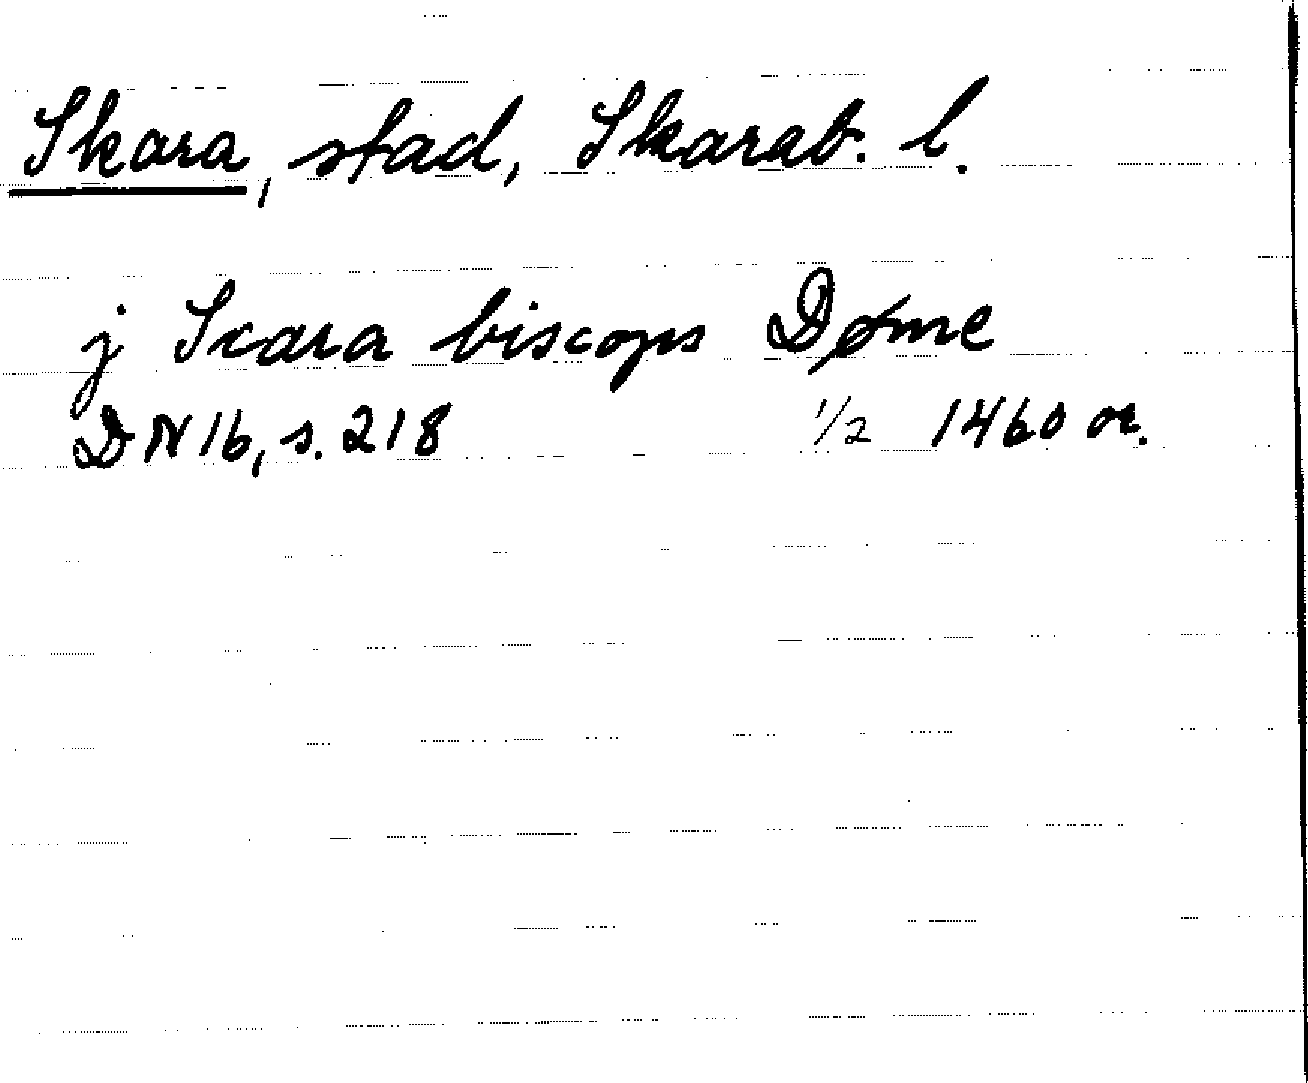 Skara, stad, Skarab. l.
j Scara biscops Døme
DN 16, s. 218 1/2 1460 or.